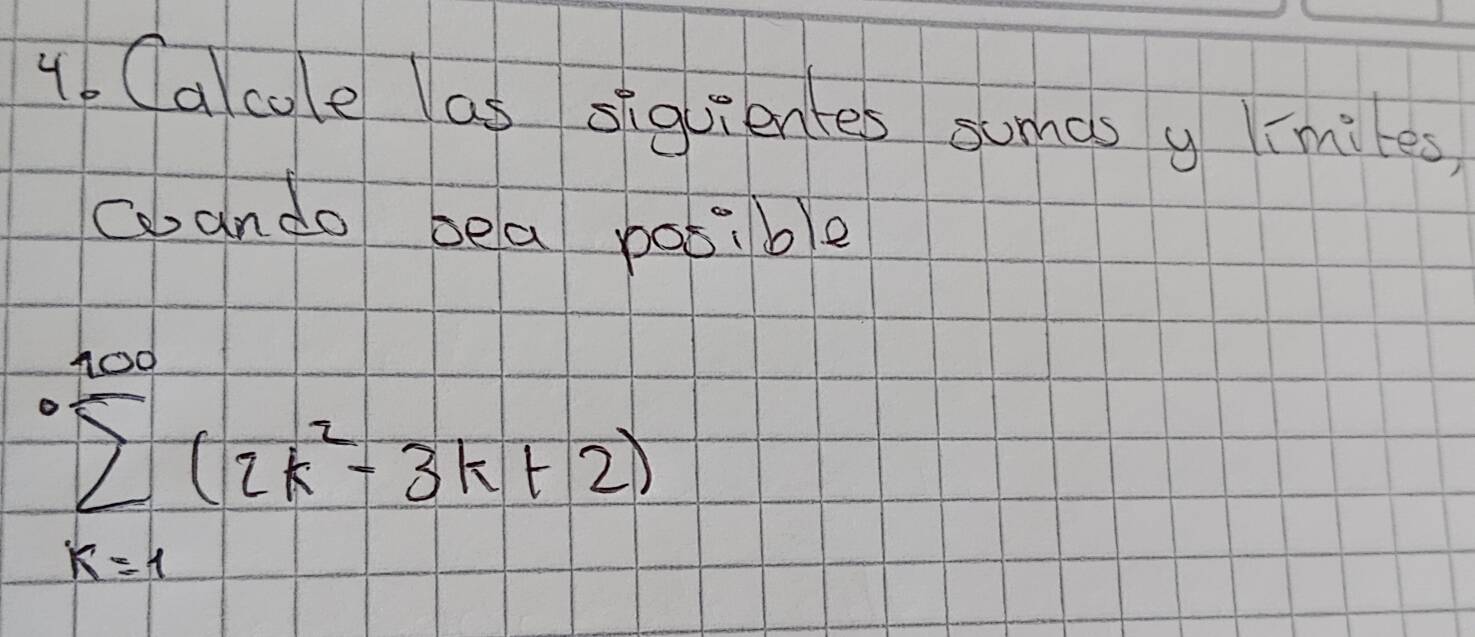 4. Calcule las siguientes sumas y límites,
cuando sea posible
100
• Σ (2k² - 3k + 2)
K=1